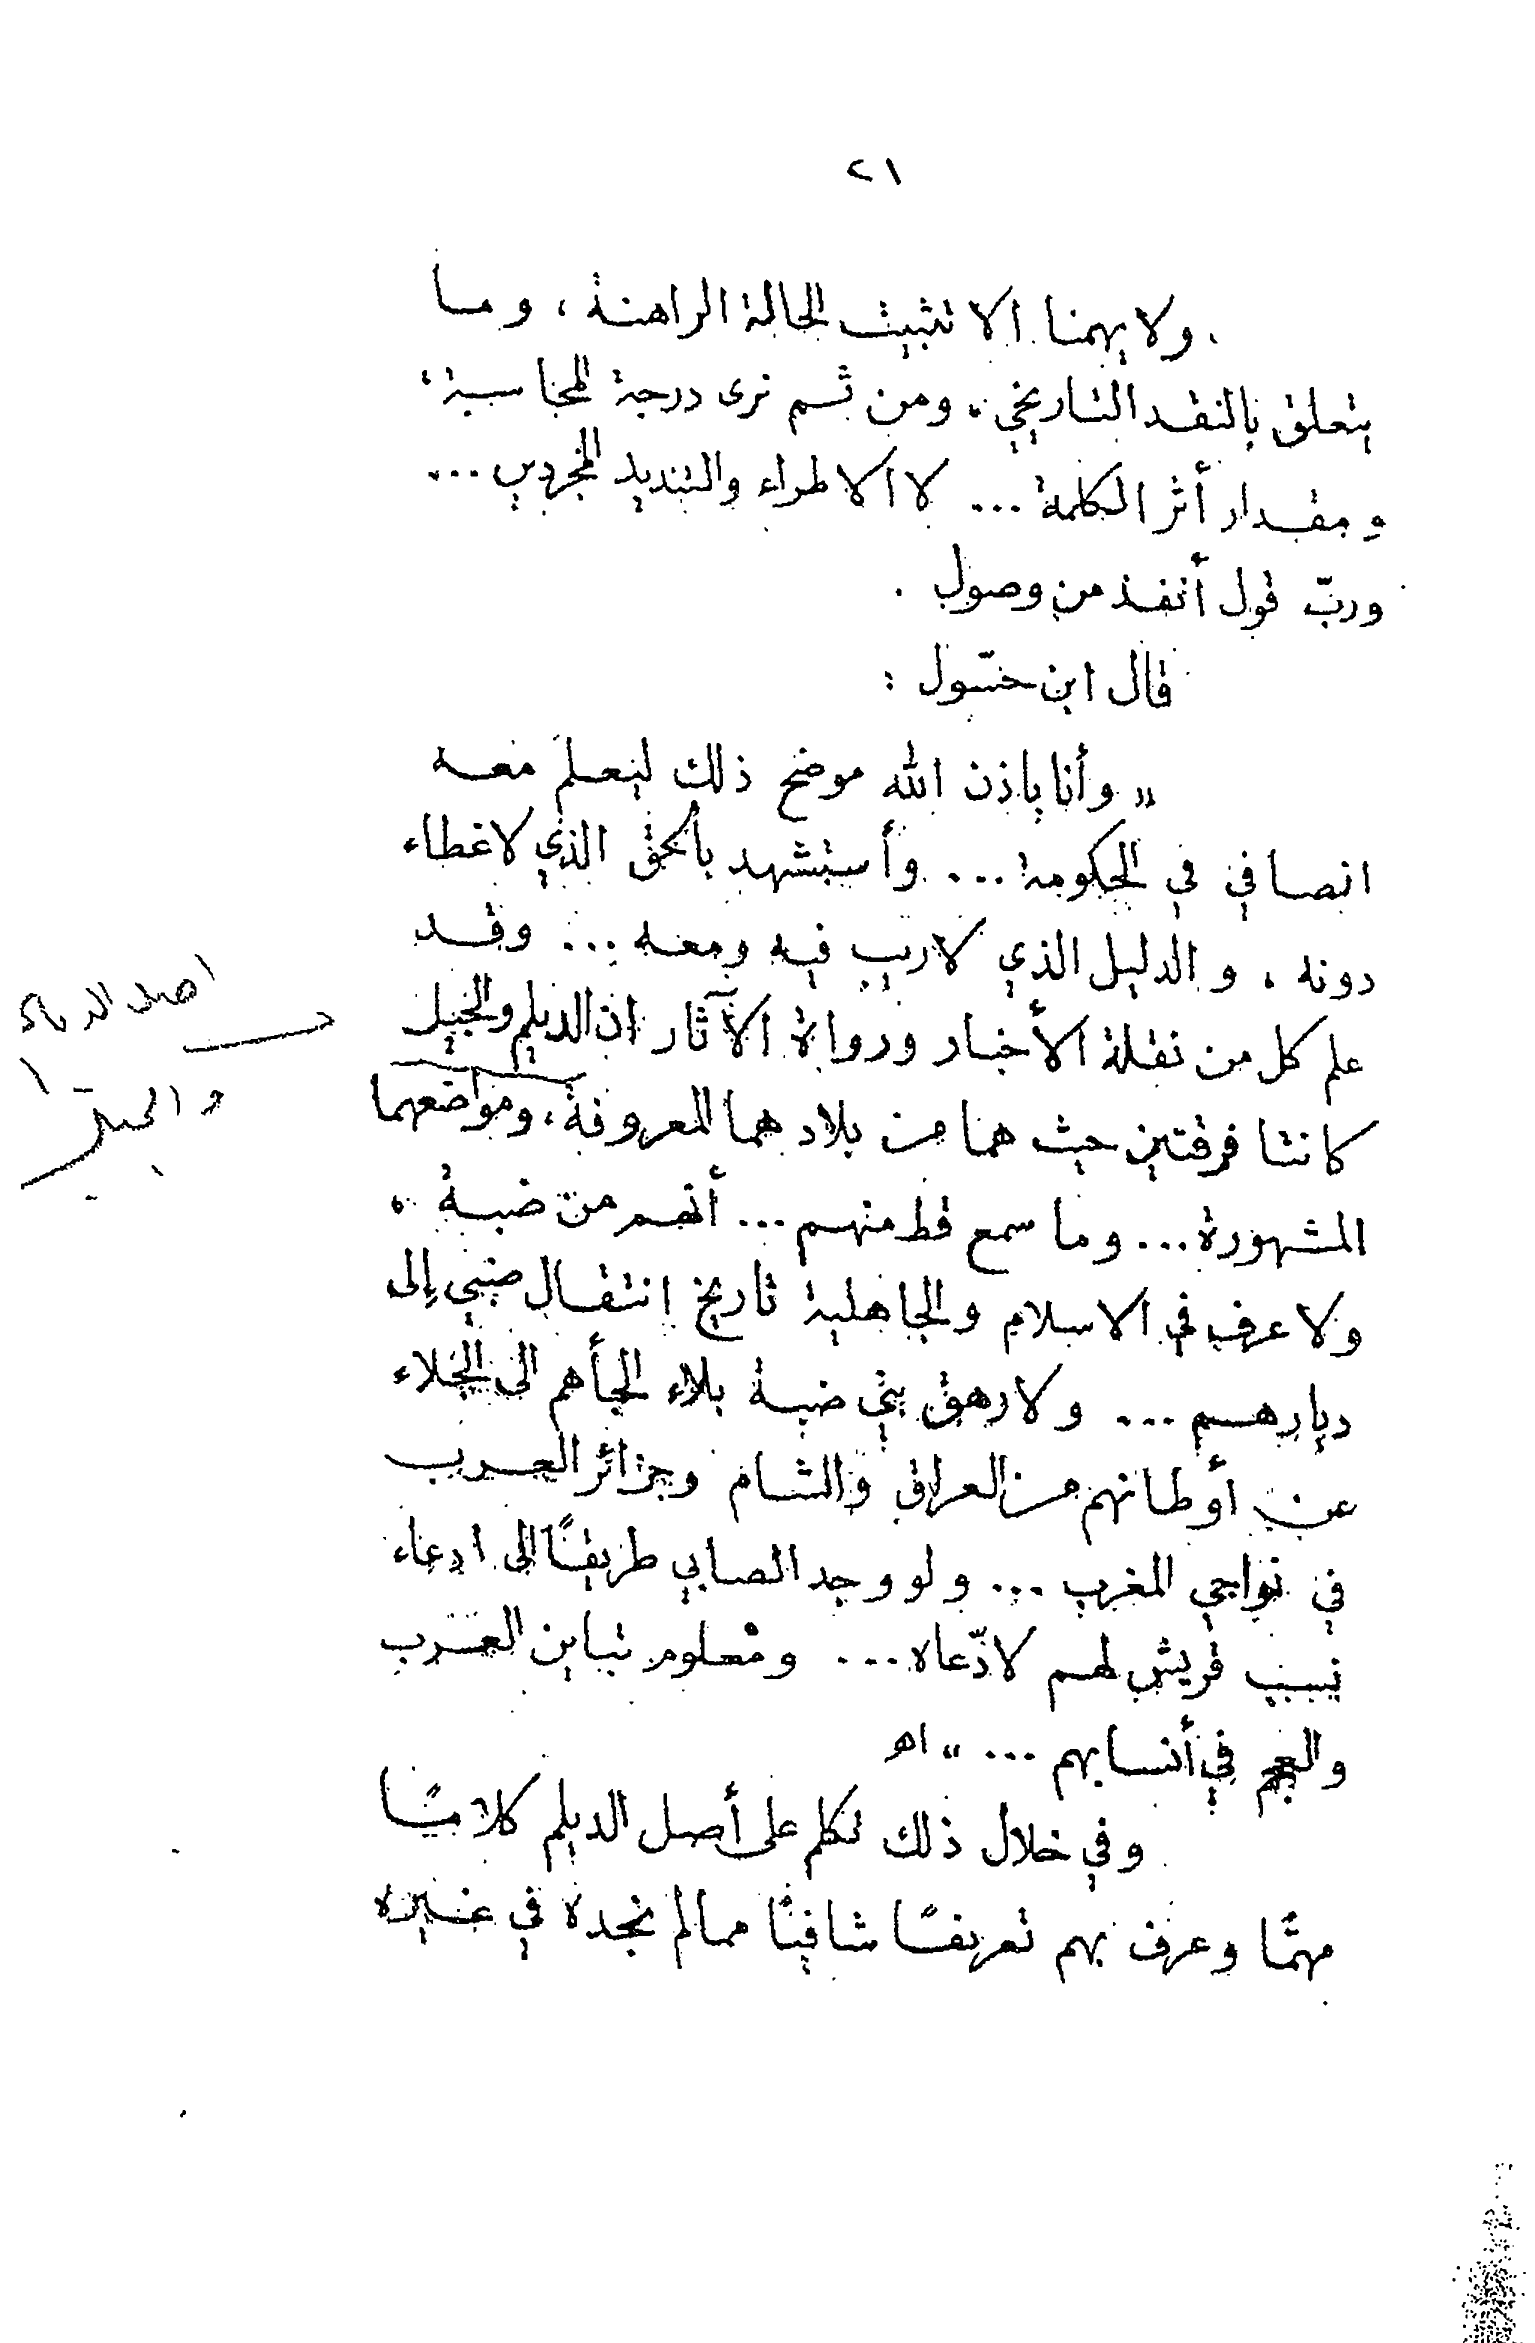 ٢١
ولا يهمنا الا تثبيت الحالة الراهنة ، وما
يتعلق بالنقد التاريخي . ومن ثم نرى درجة المجاسبة ،
ومقدار أثر الكلمة ... لا الاطراء والتنديد المجردين ...
وربّ قول أنفذ من وصول .
قال ابن حسّول :
« وأنا باذن الله موضح ذلك ليعلم معه
انصافي في الحكومة ... وأستشهد بالحق الذي لا غطاء
دونه ، والدليل الذي لا ريب فيه ومعه ... وقد
علم كل من نقلة الأخبار ورواة الآثار ان الديلم والجيل
كانتا فرقتين حيث هما من بلادهما المعروفة ، ومواضعهما
المشهورة ... وما سمع قط منهم ... أنهم من ضبة .
ولا عرف في الاسلام والجاهلية تاريخ انتقال ضبي إلى
ديارهم ... ولا رهق بني ضبة بلاء الجأهم الى الجلاء
عن أوطانهم من العراق والشام وجزائر العرب
في نواحي المغرب ... ولو وجد الصابي طريقًا الى ادعاء
نسب قريش لهم لادّعاه ... ومعلوم تباين العرب
والعجم في أنسابهم ... » اهـ
وفي خلال ذلك تكلم على أصل الديلم كلامًا
مهمًا وعرف بهم تعريفًا شافيًا مما لم نجده في غيره
اصل الديلم
والجيل